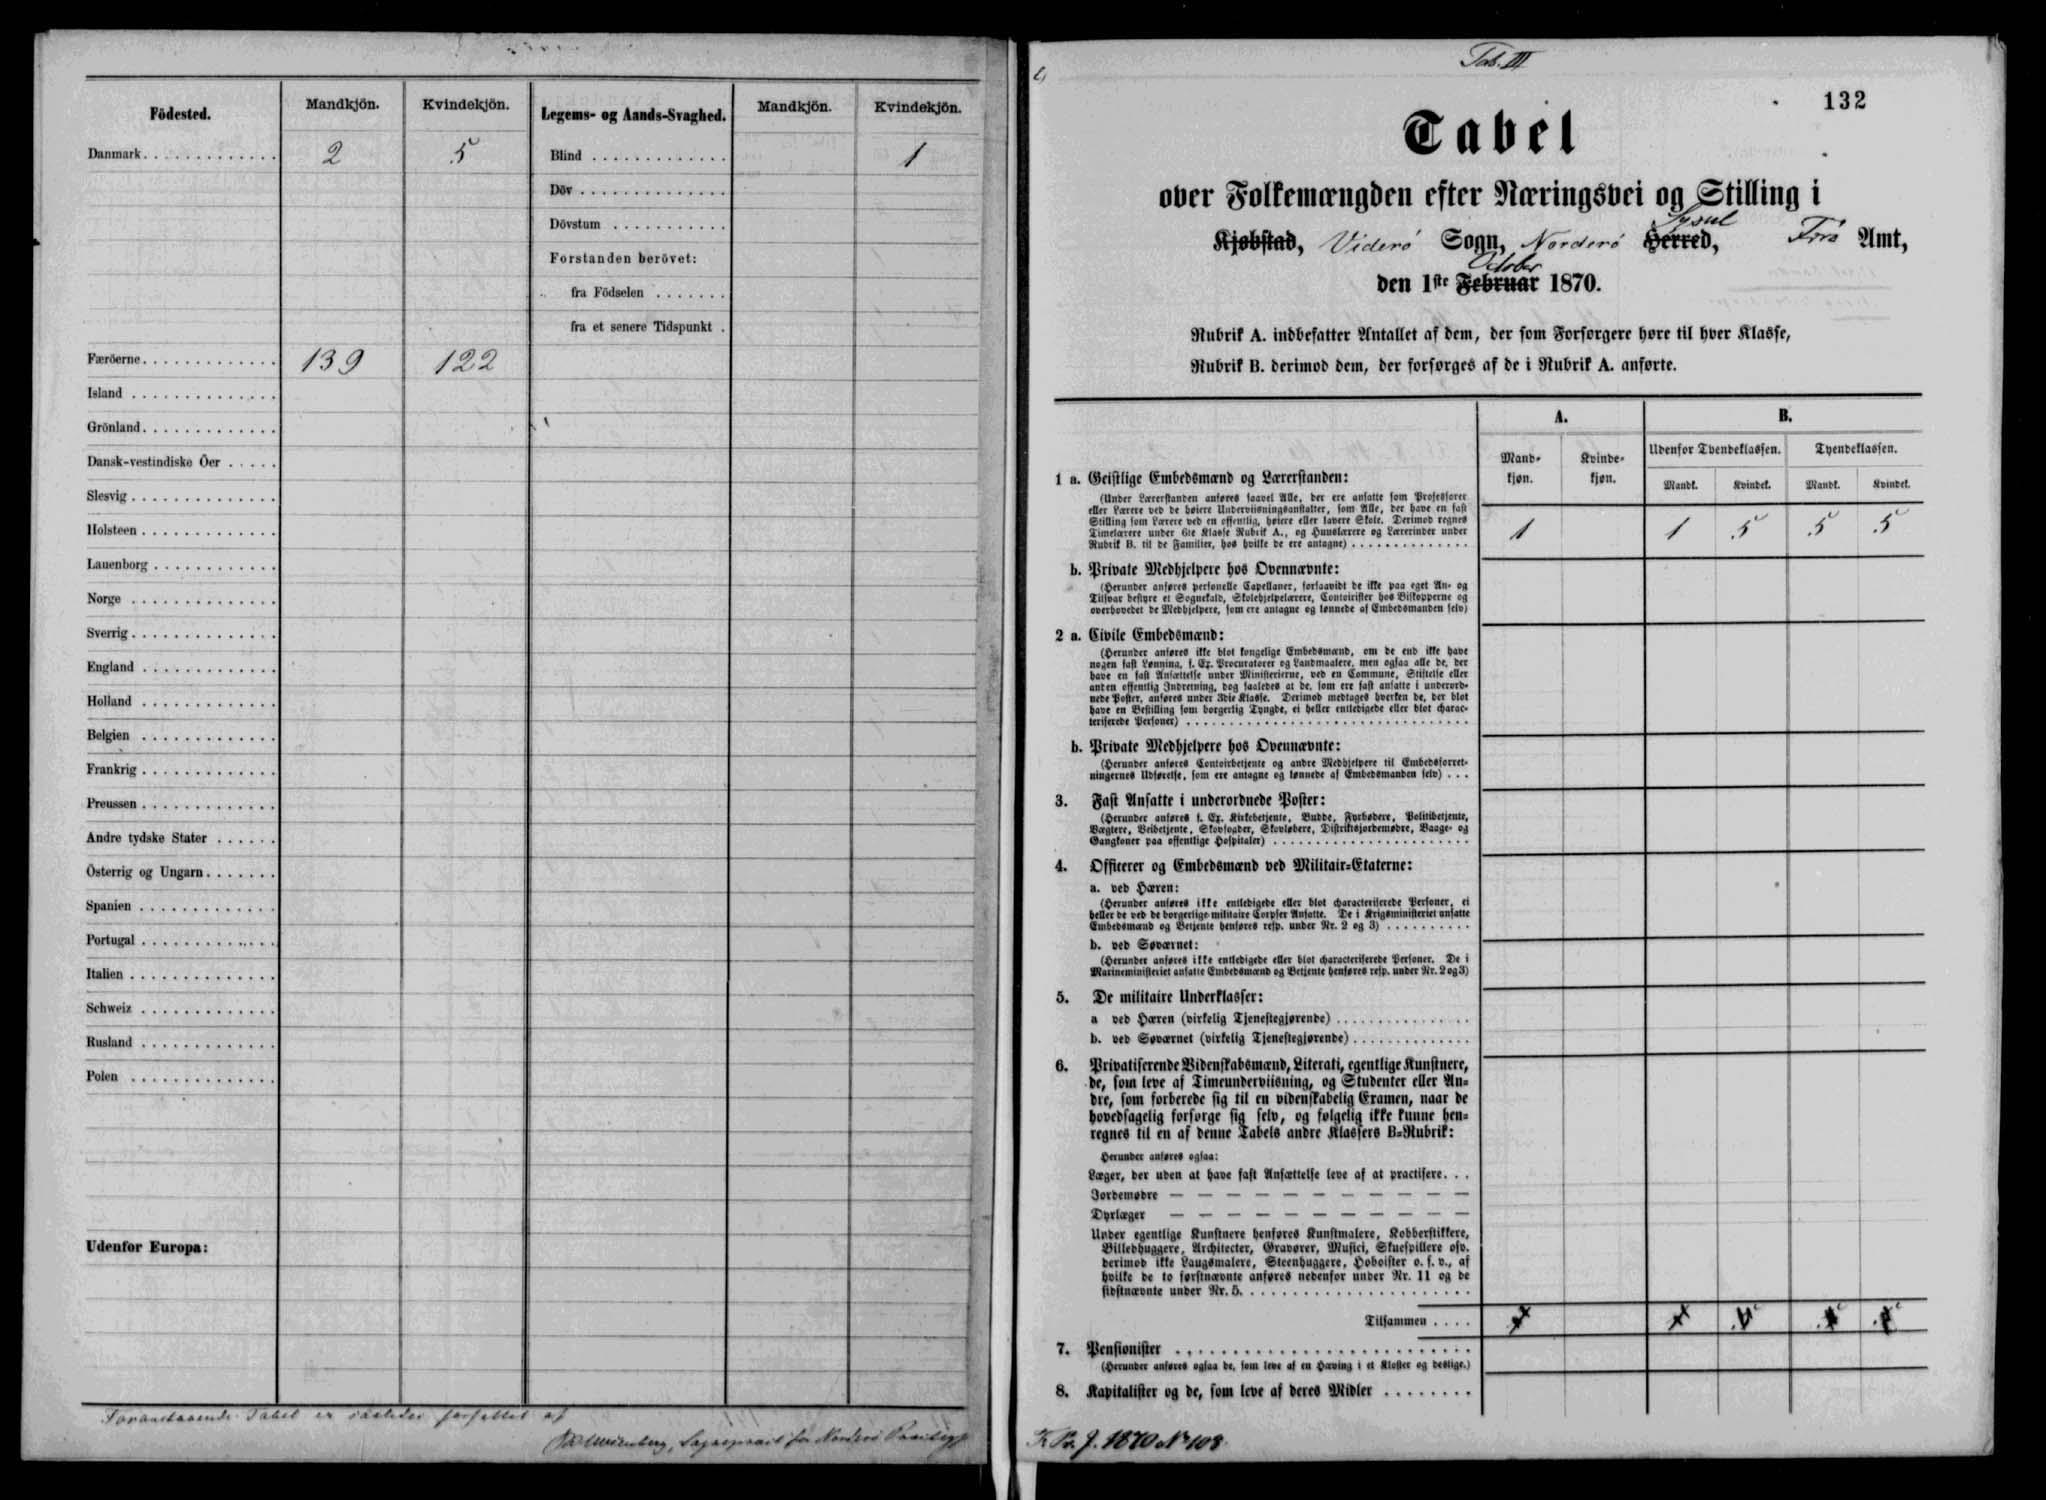 Födested.
Mandkjön.
Kvindekjön.
Legems- og Aands-Svaghed.
Mandkjön.
Kvindekjön.
Danmark 2 5
Blind 1
Döv
Dövstum
Forstanden berövet:
fra Födselen
fra et senere Tidspunkt
Færöerne 139 122
Island
Grönland
Dansk-vestindiske Öer
Slesvig
Holsteen
Lauenborg
Norge
Sverrig
England
Holland
Belgien
Frankrig
Preussen
Andre tydske Stater
Österrig og Ungarn
Spanien
Portugal
Italien
Schweiz
Rusland
Polen
Udenfor Europa:
Foranstaaende Tabel er saaledes forfattet af
Sognepræst for Norderø Præstegj
Tab. III
132
Tabel
over Folkemængden efter Næringsvei og Stilling i
Kjøbstad, Viderø Sogn, Norderø Herred, Sysel Færø Amt,
den 1ste Februar October 1870.
Rubrik A. indbefatter Antallet af dem, der som Forsørgere høre til hver Klasse,
Rubrik B. derimod dem, der forsørges af de i Rubrik A. anførte.
A.
B.
Mand-
kjøn.
Kvinde-
kjøn.
Udenfor Tyendeklassen.
Tyendeklassen.
Mandk.
Kvindek.
Mandk.
Kvindek.
1 a. Geistlige Embedsmænd og Lærerstanden:
(Under Lærerstanden anføres saavel Alle, der ere ansatte som Professorer
eller Lærere ved de høiere Underviisningsanstalter, som Alle, der have en fast
Stilling som Lærere ved en offentlig, høiere eller lavere Skole. Derimod regnes
Timelærere under 6te Klasse Rubrik A., og Huuslærere og Lærerinder under
Rubrik B. til de Familier, hos hvilke de ere antagne) 1 1 5 5 5
b. Private Medhjelpere hos Ovennævnte:
(Herunder anføres personelle Capellaner, forsaavidt de ikke paa eget An- og
Tilsvar bestyre et Sognekald, Skolehjelpelærere, Contoirister hos Biskopperne og
overhovedet de Medhjelpere, som ere antagne og lønnede af Embedsmanden selv)
2 a. Civile Embedsmænd:
(Herunder anføres ikke blot kongelige Embedsmænd, om de end ikke have
nogen fast Lønning, f. Ex. Procuratorer og Landmaalere, men ogsaa alle de, der
have en fast Ansættelse under Ministerierne, ved en Commune, Stiftelse eller
anden offentlig Indretning, dog saaledes at de, som ere fast ansatte i underord-
nede Poster, anføres under 3die Klasse. Derimod medtages hverken de, der blot
have en Bestilling som borgerlig Tyngde, ei heller entledigede eller blot charac-
teriserede Personer)
b. Private Medhjelpere hos Ovennævnte:
(Herunder anføres Contoirbetjente og andre Medhjelpere til Embedsforret-
ningernes Udførelse, som ere antagne og lønnede af Embedsmanden selv)
3. Fast Ansatte i underordnede Poster:
(Herunder anføres f. Ex. Kirkebetjente, Budde, Fyrbødere, Politibetjente,
Vægtere, Veibetjente, Skovfogder, Skovløbere, Distriktsjordemødre, Vaage- og
Gangkoner paa offentlige Hospitaler)
4. Officerer og Embedsmænd ved Militair-Etaterne:
a. ved Hæren:
(Herunder anføres ikke entledigede eller blot characteriserede Personer, ei
heller de ved de borgerlige militaire Corpser Ansatte. De i Krigsministeriet ansatte
Embedsmænd og Betjente henføres resp. under Nr. 2 og 3)
b. ved Søværnet:
(Herunder anføres ikke entledigede eller blot characteriserede Personer. De i
Marineministeriet ansatte Embedsmænd og Betjente henføres resp. under Nr. 2 og 3)
5. De militaire Underklasser:
a ved Hæren (virkelig Tjenestegjørende)
b. ved Søværnet (virkelig Tjenestegjørende)
6. Privatiserende Videnskabsmænd, Literati, egentlige Kunstnere,
de, som leve af Timeunderviisning, og Studenter eller An-
dre, som forberede sig til en videnskabelig Examen, naar de
hovedsagelig forsørge sig selv, og følgelig ikke kunne hen-
regnes til en af denne Tabels andre Klassers B-Rubrik:
Herunder anføres ogsaa:
Læger, der uden at have fast Ansættelse leve af at practisere
Jordemødre — — — — — — — — — — —
Dyrlæger — — — — — — — — — — —
Under egentlige Kunstnere henføres Kunstmalere, Kobberstikkere,
Billedhuggere, Architecter, Gravører, Musici, Skuespillere osv.
derimod ikke Laugsmalere, Steenhuggere, Hoboister o. s. v., af
hvilke de to førstnævnte anføres nedenfor under Nr. 11 og de
sidstnævnte under Nr. 5.
Tilsammen
7. Pensionister
(Herunder anføres ogsaa de, som leve af en Hæving i et Kloster og deslige.)
8. Kapitalister og de, som leve af deres Midler
K Pr. J. 1870 No 108